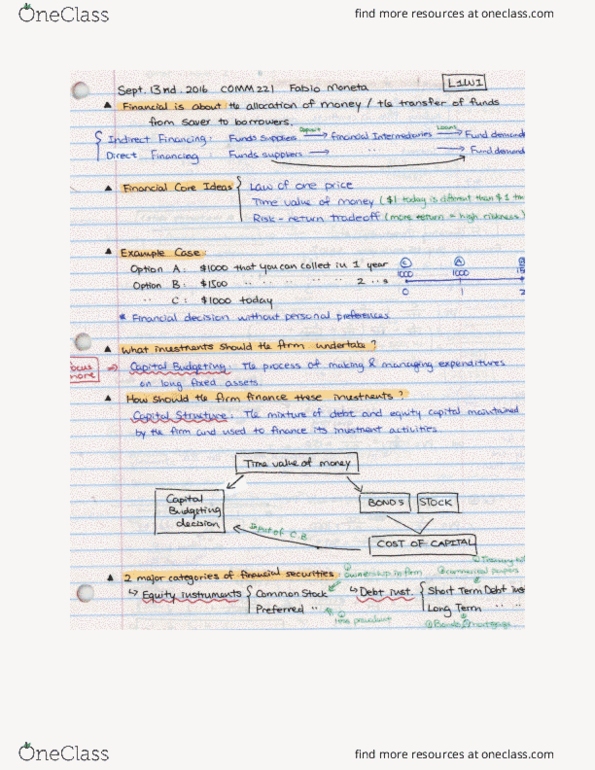 OneClass
find more resources at oneclass.com
L1W1
Sept. 13nd. 2016 COMM221 Fabio Moneta
▲ Financial is about the allocation of money / the transfer of funds
from saver to borrowers.
Indirect Financing: Funds suppliers Deposit → Financial Intermediaries Loans → Fund demand
Direct Financing: Funds suppliers → " → Fund demand
▲ Financial Core Ideas { Law of one price
Time value of money ($1 today is different than $1
Risk - return tradeoff (more return = high riskness)
▲ Example Case:
Option A: $1000 that you can collect in 1 year
Option B: $1500 " " " " 2 " s
" C: $1000 today
C A
1000 1000 15
0 1 2
* Financial decision without personal preferences
▲ What investments should the firm undertake?
focus more
⇒ Capital Budgeting: The process of making & managing expenditures
on long fixed assets.
▲ How should the firm finance these investments?
Capital Structure: The mixture of debt and equity capital maintained
by the firm and used to finance its investment activities.
Time value of money
Capital Budgeting decision
BONDS STOCK
Input of C.B
COST OF CAPITAL
▲ 2 major categories of financial securities:
ownership in firm
commercial papers
↳ Equity instruments { Common Stock
Preferred "
↳ Debt inst. { Short Term Debt inst
Long Term " "
Bonds mortgage
OneClass
find more resources at oneclass.com